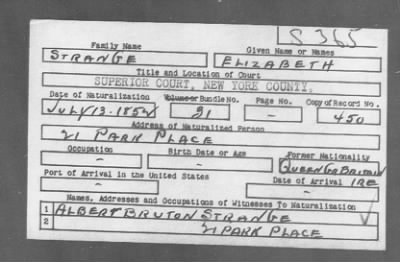 S 365
Family Name Given Name or Names
STRANGE ELIZABETH
Title and Location of Court
SUPERIOR COURT, NEW YORK COUNTY.
Date of Naturalization Volume or Bundle No. Page No. Copy of Record No.
JULY 13-1852 21 - 450
Address of Naturalized Person
21 PARK PLACE
Occupation Birth Date or Age Former Nationality
- - QUEEN GR BRITAIN
Port of Arrival in the United States Date of Arrival IRE
- -
Names, Addresses and Occupations of Witnesses To Naturalization
1 ALBERT BRUTON STRANGE
2 21 PARK PLACE